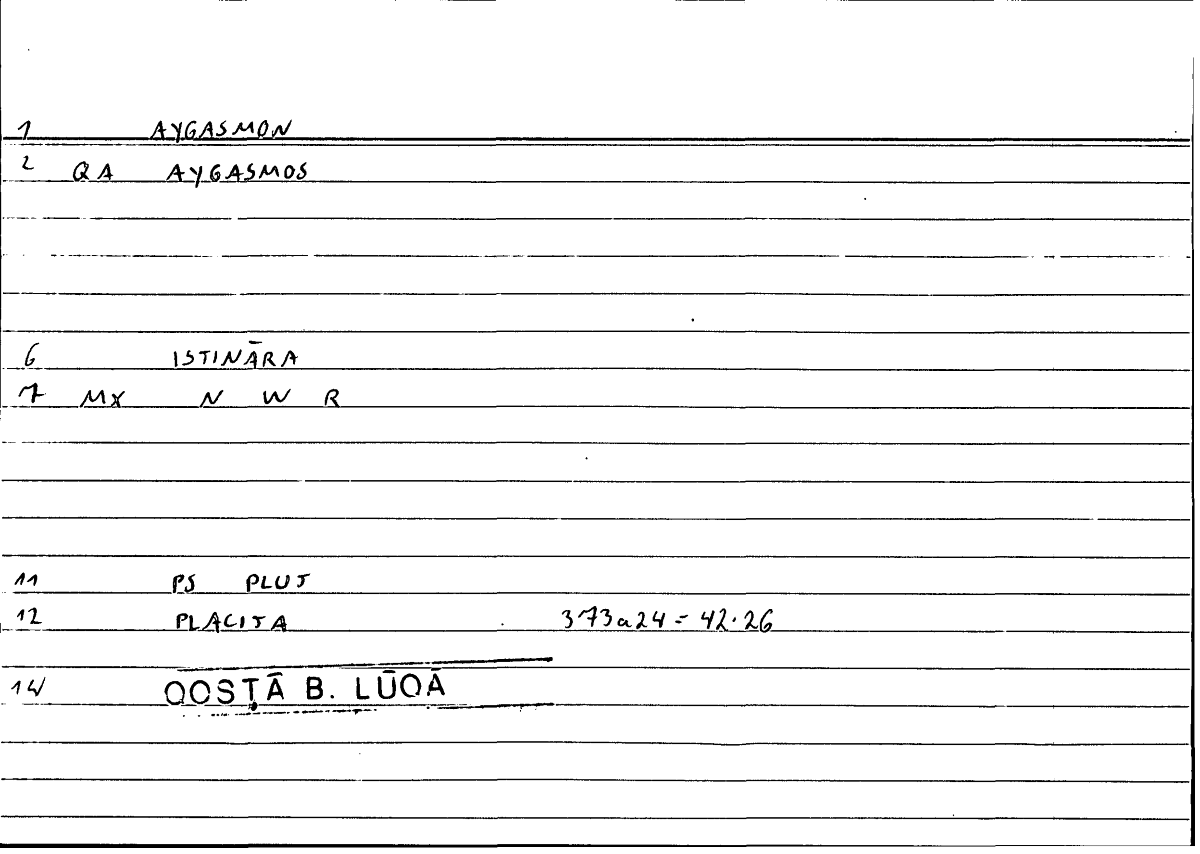 1 AYGASMON
2 QA AYGASMOS
6 ISTINĀRA
7 MX N W R
11 PS PLUT
12 PLACITA 373a24 = 42.26
14 QOSṬĀ B. LŪQĀ